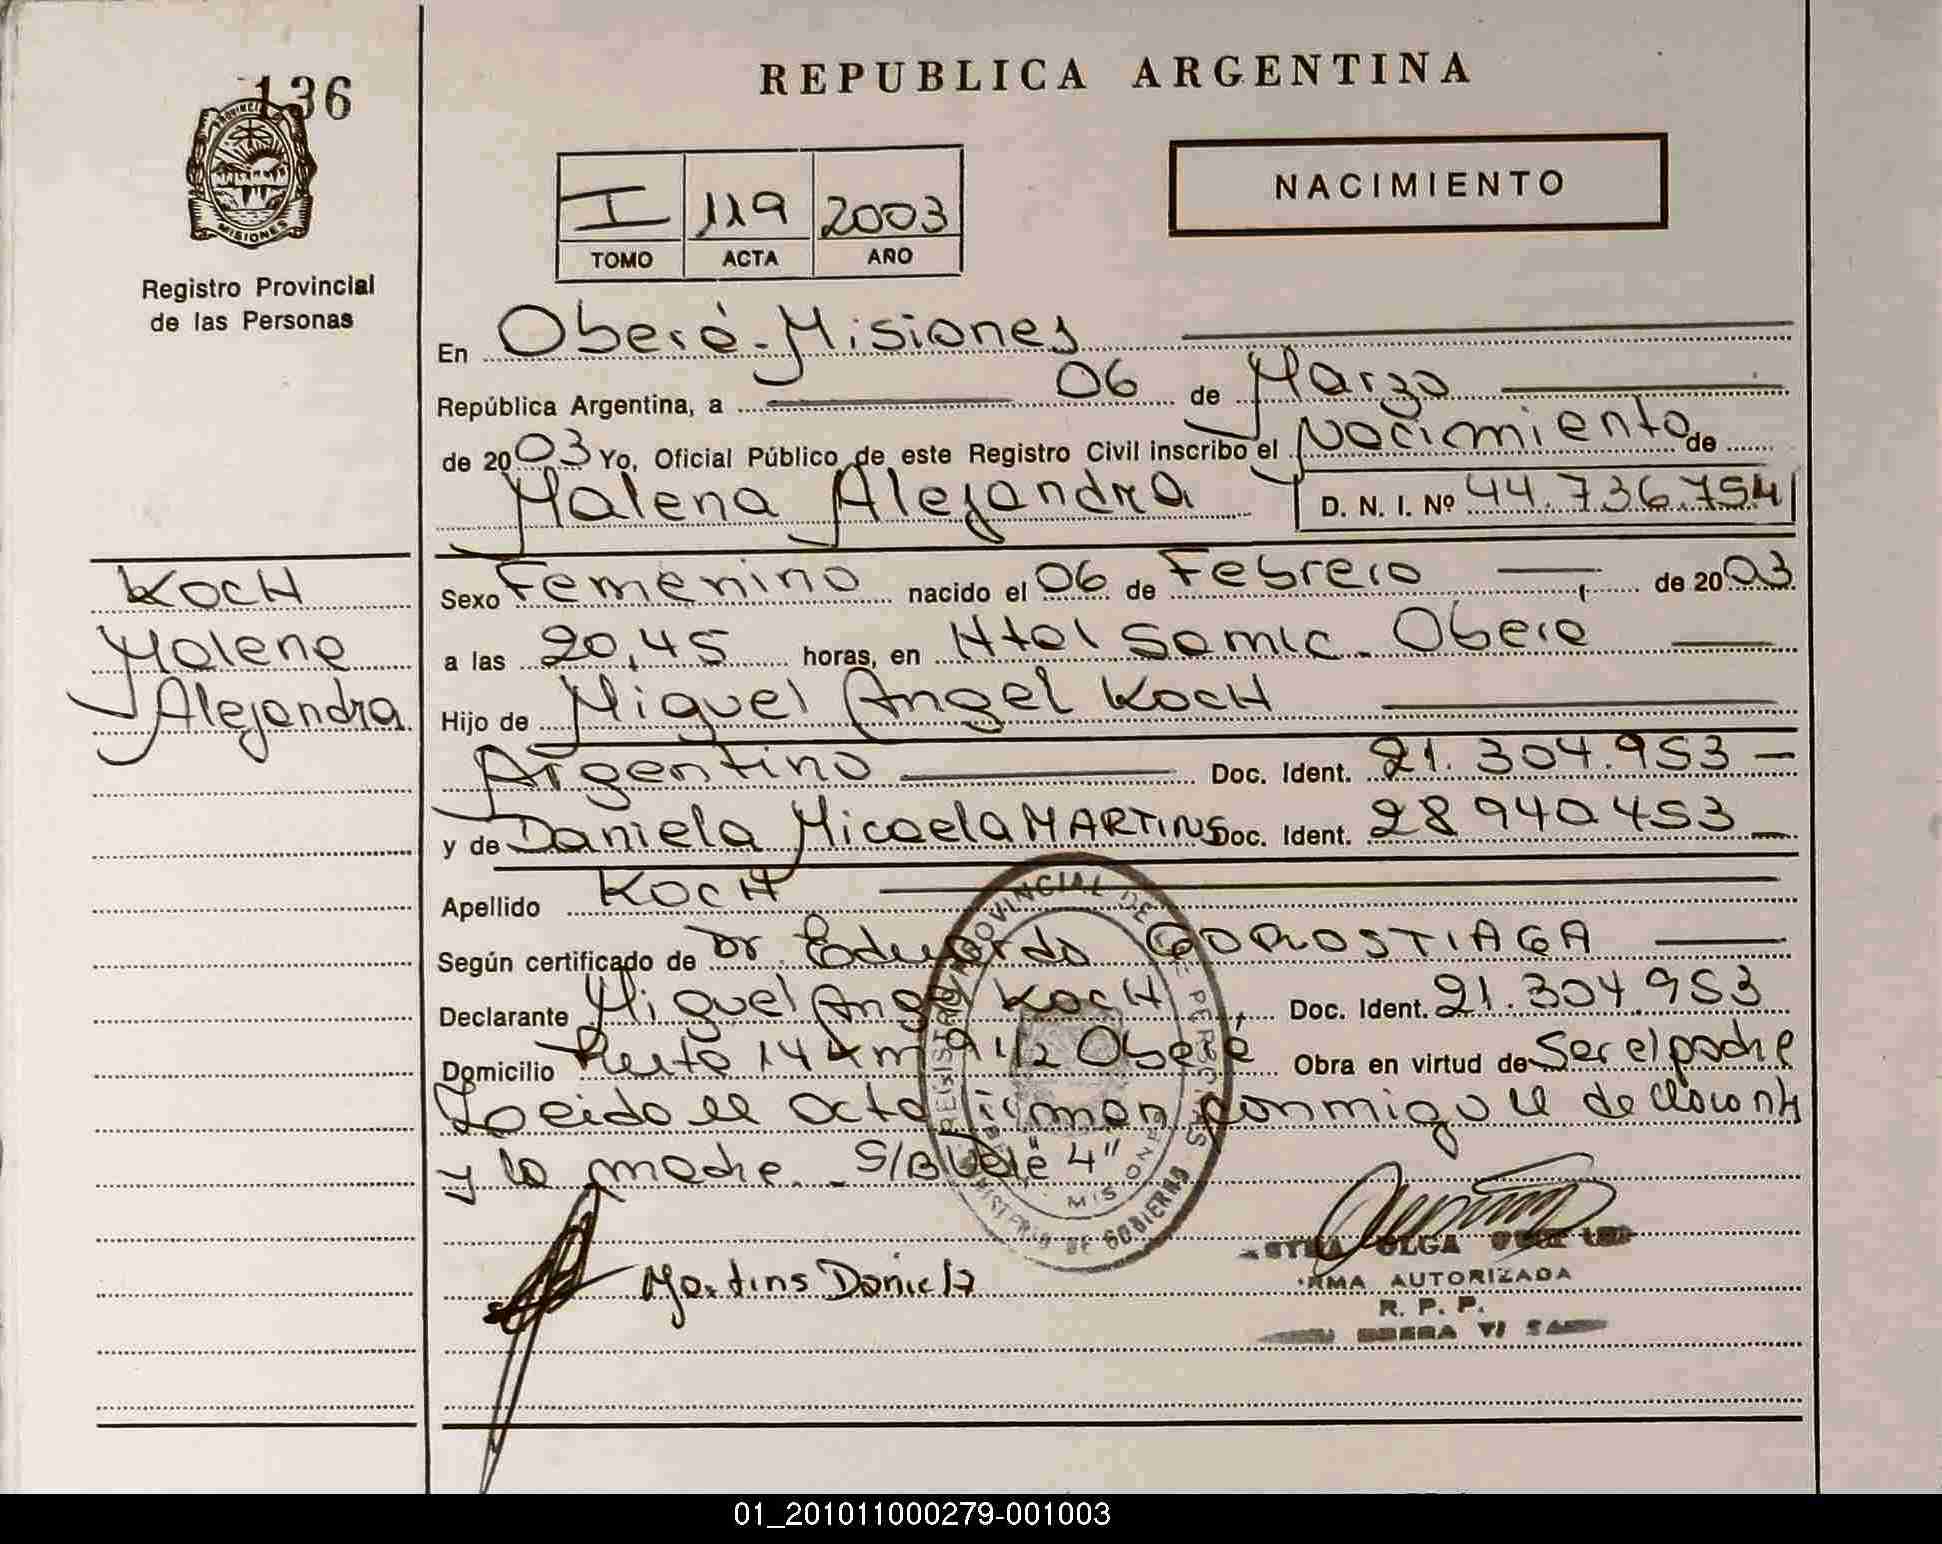 136
PROVINCIA
MISIONES
Registro Provincial
de las Personas
REPUBLICA ARGENTINA
NACIMIENTO
I 119 2003
TOMO ACTA AÑO
En Oberá-Misiones
República Argentina, a 06 de Marzo
de 2003 Yo, Oficial Público de este Registro Civil inscribo el Nacimiento de
Malena Alejandra D. N. I. Nº 44.736.754
KOCH
Malena
Alejandra
Sexo Femenino nacido el 06 de Febrero de 2003
a las 20,45 horas, en Htal Samic. Oberá
Hijo de Miguel Angel KOCH
Argentino Doc. Ident. 21.304.953
y de Daniela Micaela MARTINS Doc. Ident. 28 940 453
Apellido KOCH
Según certificado de Dr Eduardo GOROSTIAGA
Declarante Miguel Angel KOCH, Doc. Ident. 21.304.953
Domicilio Ruta 14 km 9 1/2 Oberá Obra en virtud de Ser el padre
Leida el acta firman conmigo el declarante
y la madre. S/B Vale "4"
REGISTRO PROVINCIAL DE LAS PERSONAS
MISIONES
MINISTERIO DE GOBIERNO
Martins Daniela
OLGA
FIRMA AUTORIZADA
R. P. P.